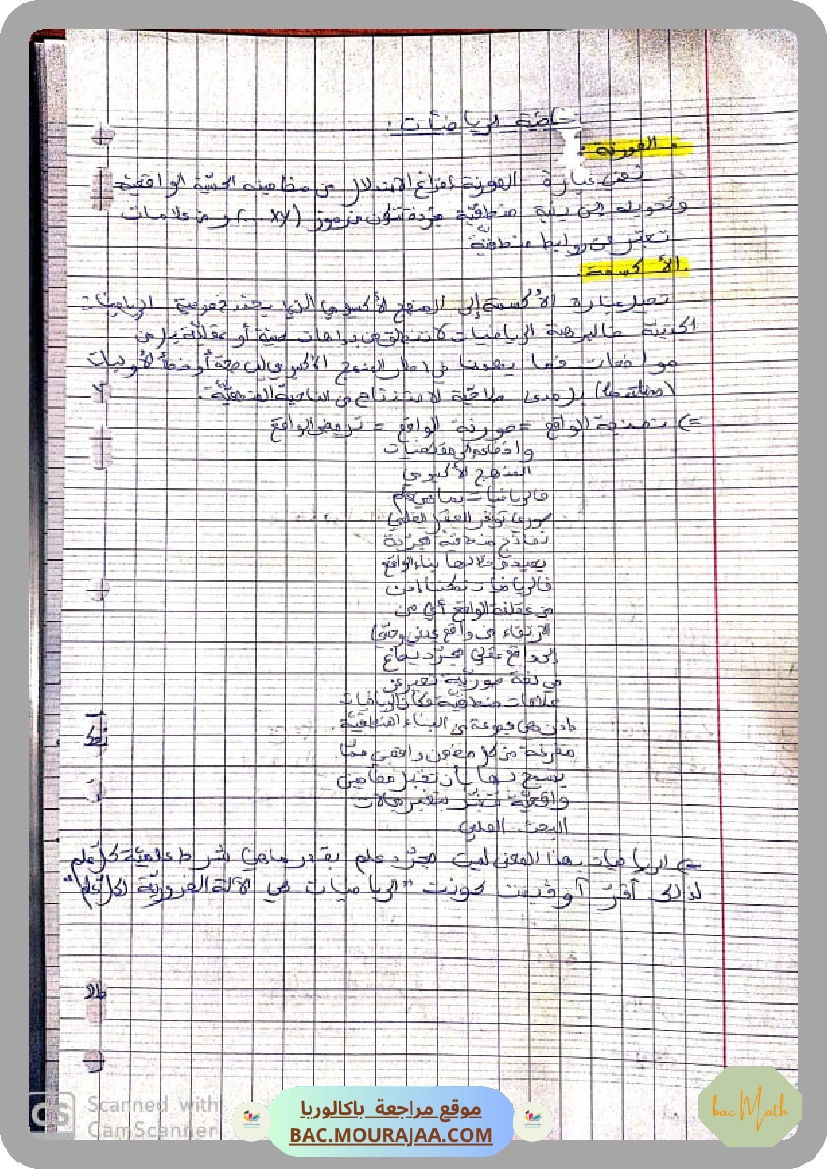 خاصية الرياضيات :
. الصورنة :
تعني عبارة الصورنة إفراغ الاستدلال من مضامينه الحسية الواقعية
وتحويله إلى بنية منطقية مجردة تتكون من رموز (x,y ...) ومن علامات
تعبّر عن روابط منطقية
. الأكسمة
تحيل عبارة الأكسمة إلى المنهج الأكسيومي الذي يحدد خصوصية الرياضيات
الحديثة فالبرهنة الرياضيات كانت تنطلق من بداهات حسية أو عقلانية
في إطار المنهج الأكسيومي إلى صحة أو خطأ الأوليات
بل مدى ملاقية الاستنتاج من الناحية المنطقية.
=> نمذجة الواقع = صورنة الواقع = ترييض الواقع
وإخضاعه إلى مقتضيات
المنهج الأكسيومي
فالرياضيات بما هي علم
صوري توفر العقل العلمي
نماذج منطقية مجردة
يعيد من خلالها بناء الواقع
فالرياضيات تمكننا إذن
من عقلنة الواقع أي من
الارتقاء من واقع عيني وحسّي
إلى واقع عقلي مجرّد يصاغ
في لغة صوريّة تعبر عن
علاقات منطقيّة فكأن الرياضيات
إذن هي مجموعة من البناءات المنطقيّة
مفرغة من كل مضمون واقعي ممّا
يسمح لها بأن تقبل مضامين
واقعيّة تتغيّر بتغير مجالات
البحث العلمي
=> الرياضيات بهذا المعنى ليست مجرّد علم بقدر ماهي شرط علميّة كل علم
لذلك أقرّ أوقيست كونت "الرياضيات هي الآلة الضروريّة لكل علم"
Scanned with
CS CamScanner
موقع مراجعة باكالوريا
BAC.MOURAJAA.COM
bac Math